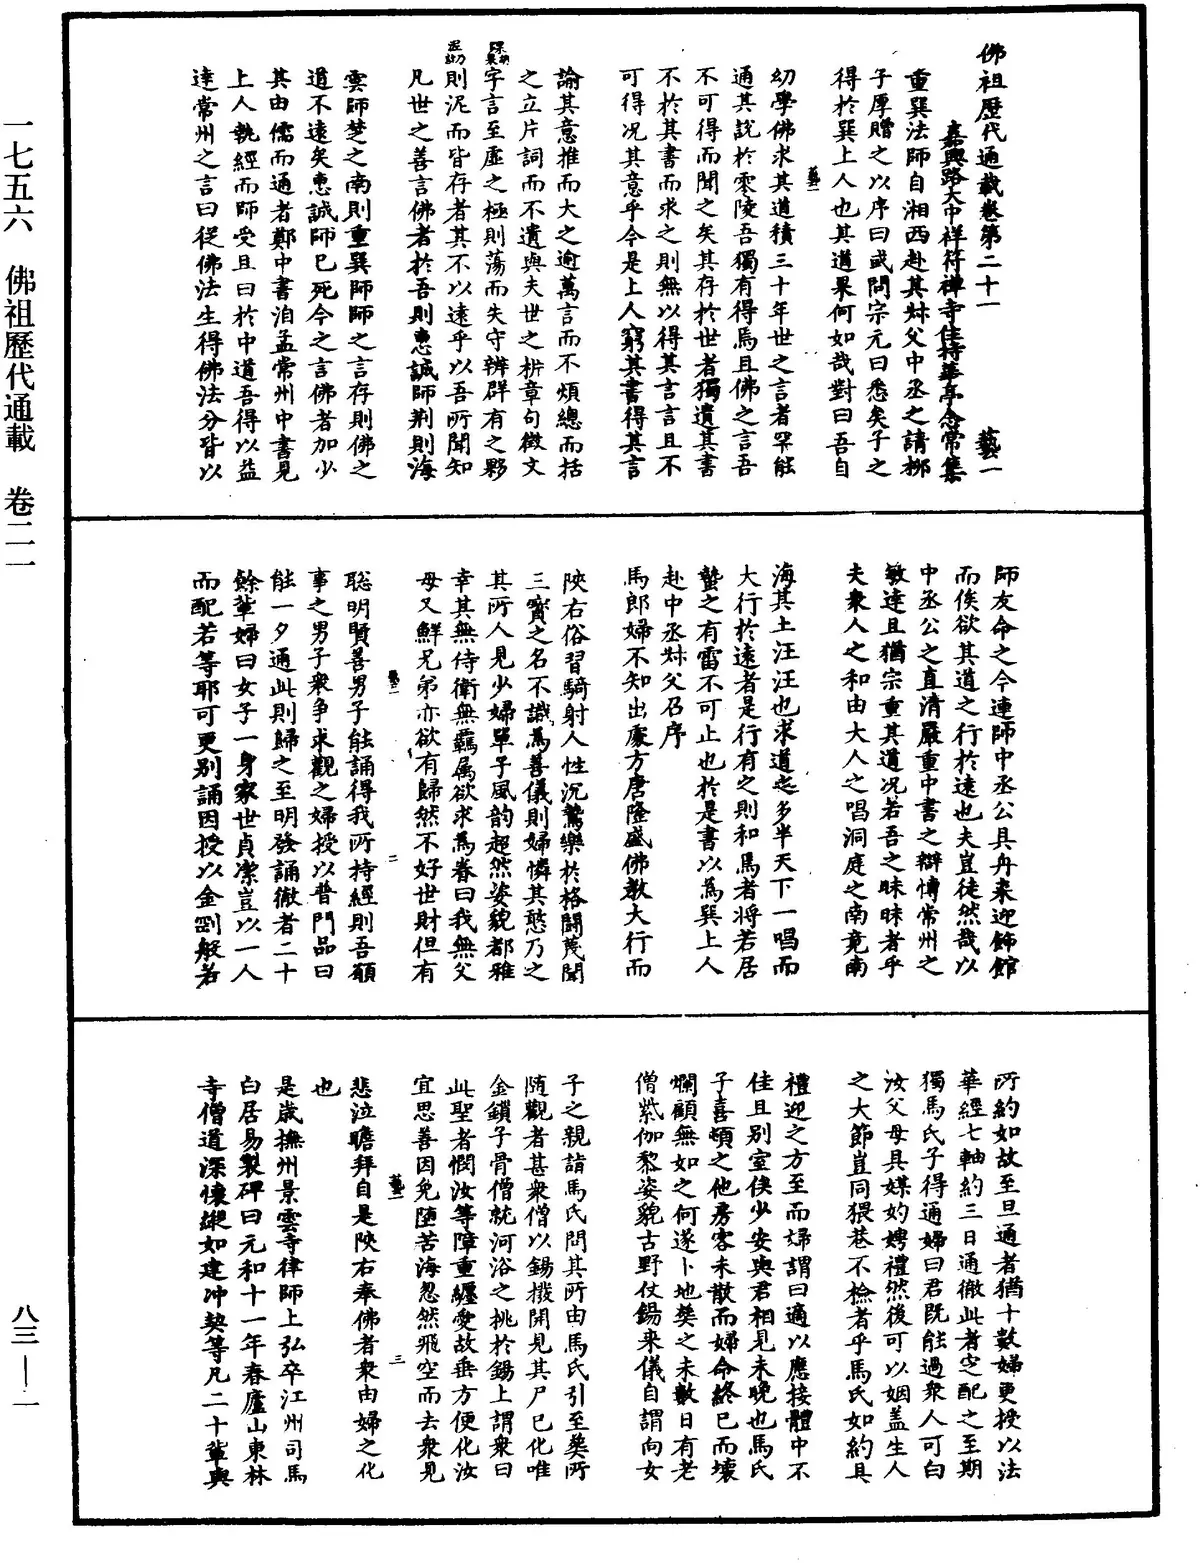 佛祖歷代通載卷第二十一　藝一
嘉興路大中祥符禪寺住持華亭念常集
重巽法師自湘西赴其叔父中丞之請柳
子厚贈之以序曰或問宗元曰悉矣子之
得於巽上人也其道果何如哉對曰吾自
藝一
幼學佛求其道積三十年世之言者罕能
通其說於零陵吾獨有得焉且佛之言吾
不可得而聞之矣其存於世者獨遺其書
不於其書而求之則無以得其言言且不
可得况其意乎今是上人窮其書得其言
論其意推而大之逾萬言而不煩總而括
之立片詞而不遺與夫世之析章句徵文
字言至虛之極則蕩而失守辨群有之夥
則泥而皆存者其不以遠乎以吾所聞知
凡世之善言佛者於吾則惠誠師荆則海
雲師楚之南則重巽師師之言存則佛之
道不遠矣惠誠師已死今之言佛者加少
其由儒而通者鄭中書洎孟常州中書見
上人執經而師受且曰於中道吾得以益
達常州之言曰從佛法生得佛法分皆以
師友命之今連師中丞公具舟來迎飾館
而俟欲其道之行於遠也夫豈徒然哉以
中丞公之直清嚴重中書之辯博常州之
敏達且猶宗重其道况若吾之昧昧者乎
夫衆人之和由大人之唱洞庭之南竟南
海其土汪汪也求道之多半天下一唱而
大行於遠者是行有之則和焉者將若居
蟄之有雷不可止也於是書以為巽上人
赴中丞叔父召序
馬郎婦不知出處方唐隆盛佛教大行而
陝右俗習騎射人性沉鷙樂於格鬪蔑聞
三寶之名不識為善儀則婦憐其憨乃之
其所人見少婦單子風韵超然姿貌都雅
幸其無侍衛無羈属欲求為眷曰我無父
母又鮮兄弟亦欲有歸然不好世財但有
藝一
二
聡明賢善男子能誦得我所持經則吾願
事之男子衆争求觀之婦授以普門品曰
能一夕通此則歸之至明發誦徹者二十
餘輩婦曰女子一身家世貞潔豈以一人
而配若等耶可更别誦因授以金剛般若
所約如故至旦通者猶十數婦更授以法
華經七軸約三日通徹此者定配之至期
獨馬氏子得通婦曰君既能過衆人可白
汝父母具媒妁娉禮然後可以姻盖生人
之大節豈同猥巷不檢者乎馬氏如約具
禮迎之方至而婦謂曰適以應接體中不
佳且别室俟少安與君相見未晚也馬氏
子喜頓之他房客未散而婦命終已而壊
爛顧無如之何遂卜地葬之未數日有老
僧紫伽黎姿貌古野仗錫来儀自謂向女
子之親詣馬氏問其所由馬氏引至葬所
随觀者甚衆僧以錫撥開見其尸已化唯
金鎖子骨僧就河浴之挑於錫上謂衆曰
此聖者憫汝等障重纏愛故垂方便化汝
宜思善因免墮苦海忽然飛空而去衆見
藝一
三
悲泣瞻拜自是陝右奉佛者衆由婦之化
也
是歲撫州景雲寺律師上弘卒江州司馬
白居易製碑曰元和十一年春廬山東林
寺僧道深懷縱如建冲契等凡二十輩與
一七五六　佛祖歷代通載　卷二一
八三—一